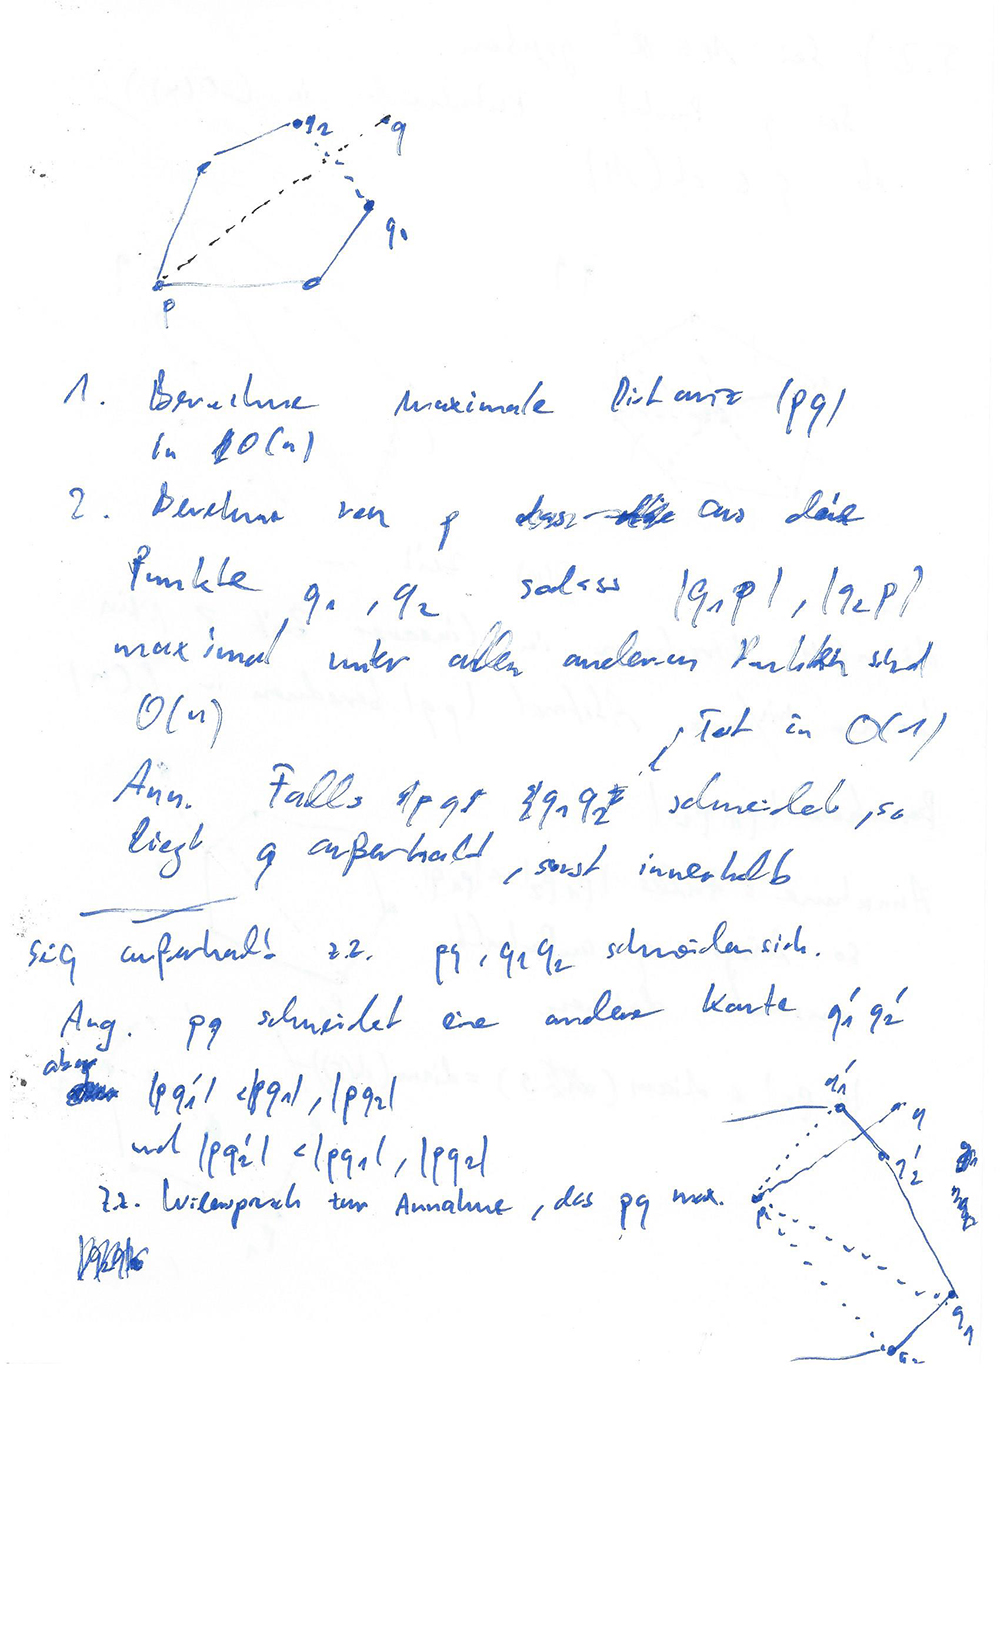 q2
q
q1
p
1. Berechne maximale Distanz |pq|
in O(n)
2. Berechne von p aus die
Punkte q1, q2 sodass |q1p|, |q2p|
maximal unter allen anderen Punkten sind
O(n)
Test in O(1)
Ann. Falls pq q1q2 schneidet, so
liegt q außerhalb, sonst innerhalb
Sei q außerhalb! z.z. pq, q1q2 schneiden sich.
Ang. pq schneidet eine andere Kante q1' q2'
aber
|pq1'| < |pq1|, |pq2|
und |pq2'| < |pq1|, |pq2|
z.z. Widerspruch zur Annahme, das pq max.
q1'
q
q2'
p
q1
q2